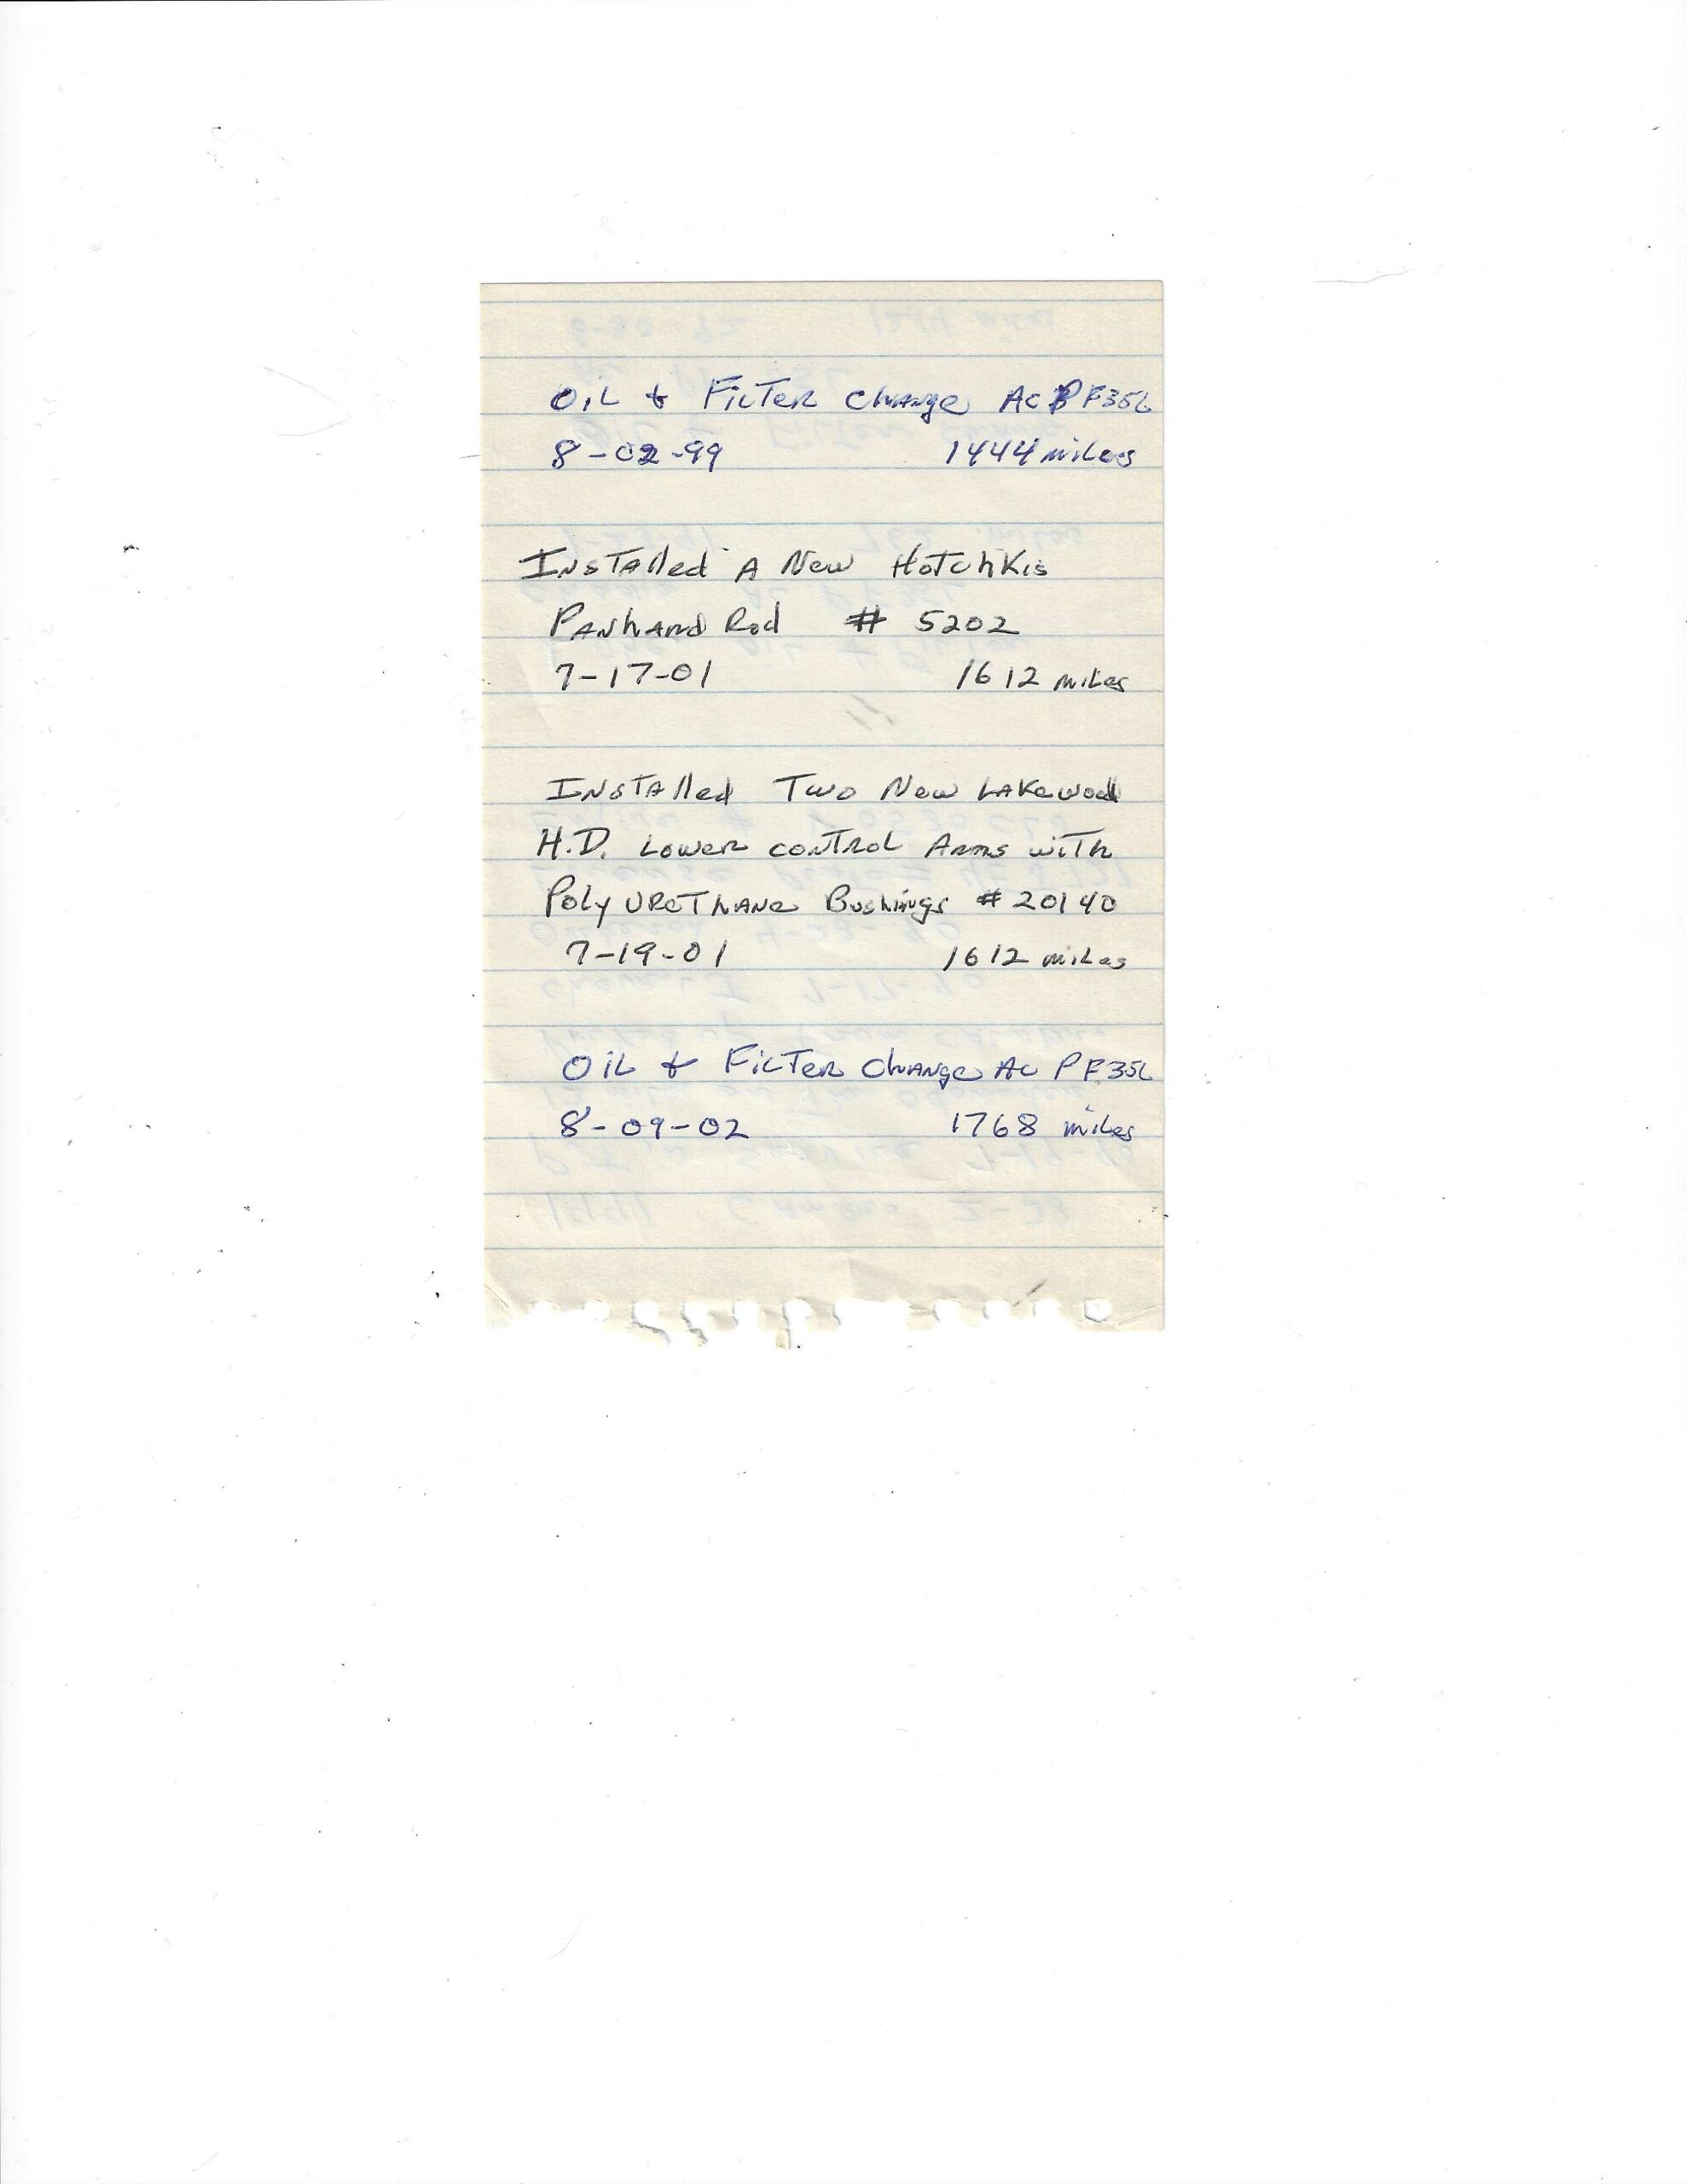 OiL & FiLTER Change AC PF35L
8-02-99 1444 miles
INSTAlled A New HotchKis
PANhard Rod # 5202
7-17-01 1612 miles
INSTAlled Two New LAKewood
H.D. Lower conTROL Arms wiTh
Poly URETHANe Bushings # 20140
7-19-01 1612 miles
OiL & FiLTER Change AC PF35L
8-09-02 1768 miles